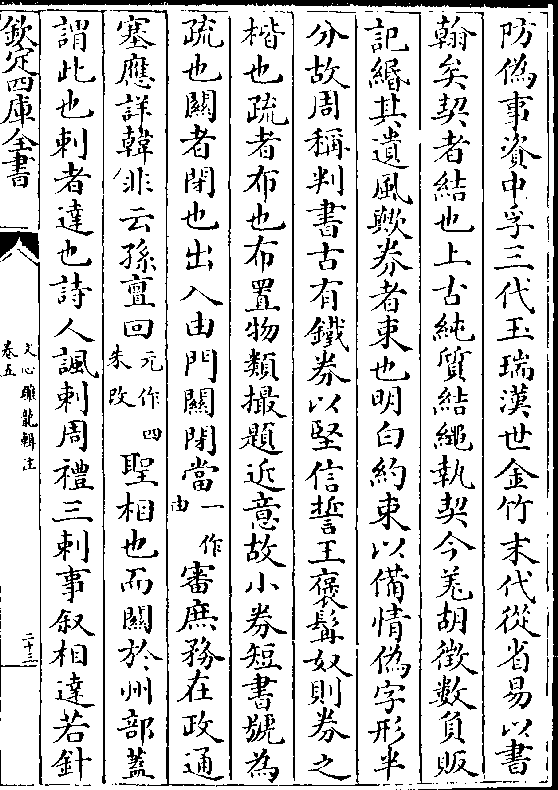 防偽事資中孚三代玉瑞漢世金竹末代從省易以書
翰矣契者結也上古純質結繩執契今羗胡徴數負販
記緡其遺風歟券者束也明白約束以備情偽字形半
分故周稱判書古有鐵券以堅信誓王褒髯奴則券之
楷也疏者布也布置物類撮題近意故小券短書號為
疏也關者閉也出入由門關閉當一作由審庶務在政通
塞應詳韓非云孫亶回元作四朱改聖相也而關於州部蓋
謂此也刺者達也詩人諷刺周禮三刺事叙相達若針
欽定四庫全書
文心雕龍輯注
卷五
二十三